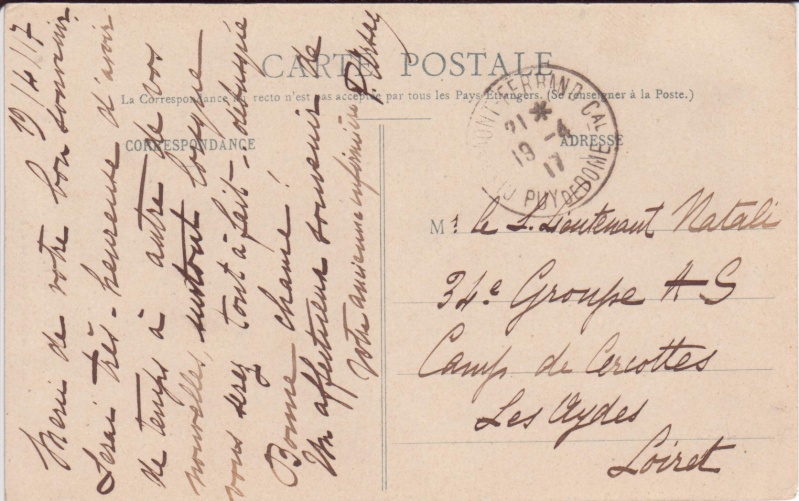 CARTE POSTALE
La Correspondance au recto n'est pas acceptée par tous les Pays Etrangers. (Se renseigner à la Poste.)
CORRESPONDANCE
ADRESSE
19/4/17
Merci de votre bon souvenir.
Serai très-heureuse d'avoir
de temps à autre de vos
nouvelles, surtout lorsque
vous serez tout à fait
Bonne chance!
Un affectueux souvenir de
votre ancienne infirmière
CLERMONT-FERRAND-GARE
21 *
19 -4
17
PUY DE DOME
M. le S. Lieutenant Natali
34e Groupe A S
Camp de Cercottes
Les Aydes
Loiret